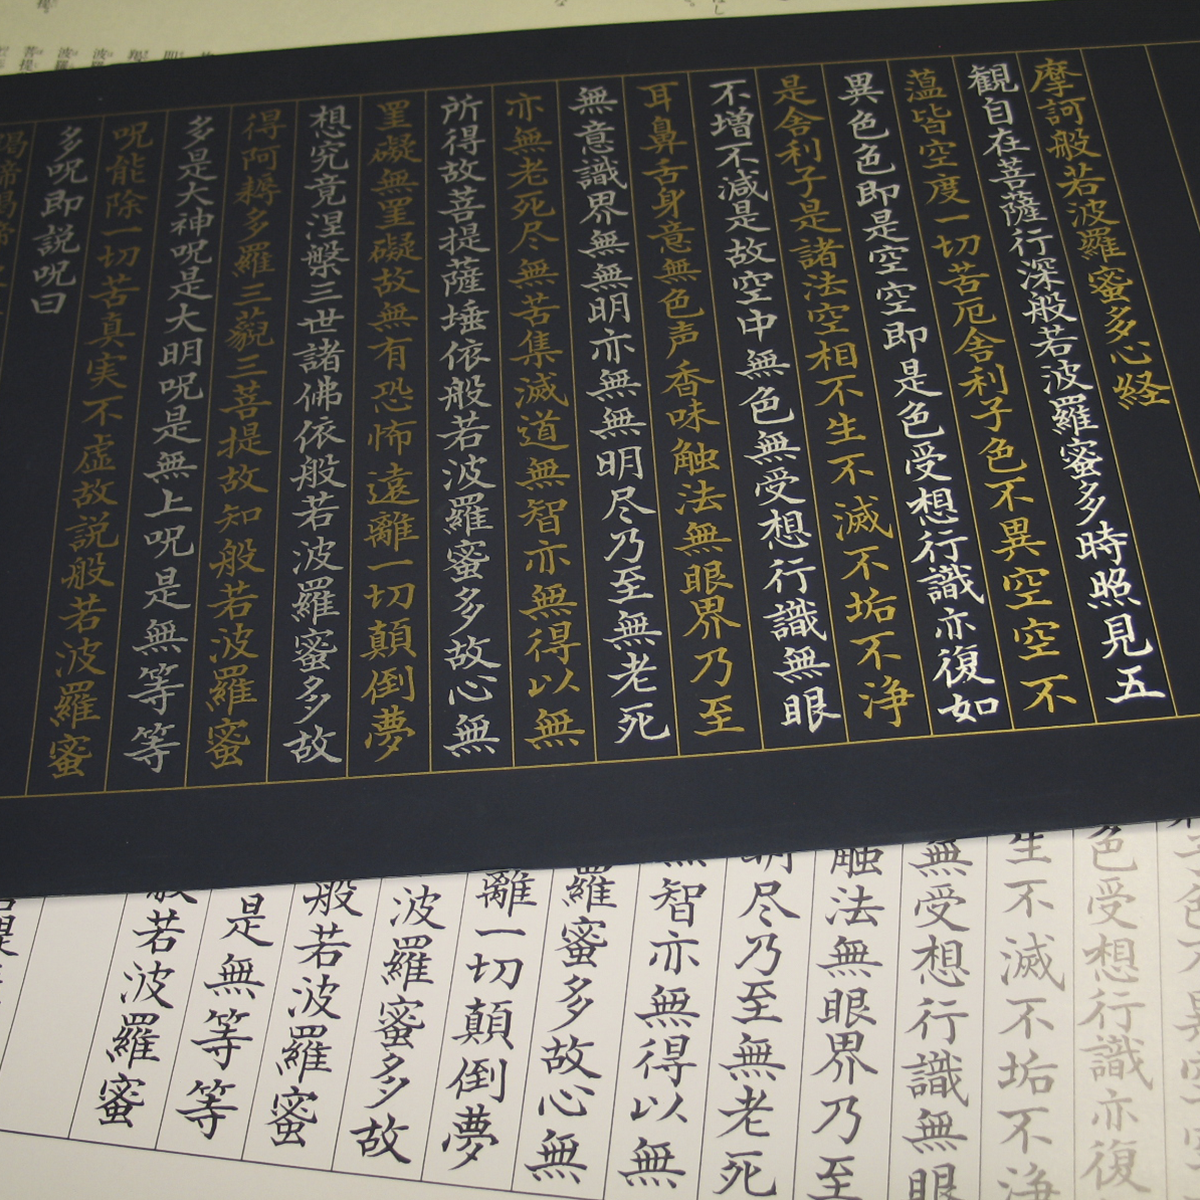 摩訶般若波羅蜜多心経
観自在菩薩行深般若波羅蜜多時照見五
薀皆空度一切苦厄舎利子色不異空空不
異色色即是空空即是色受想行識亦復如
是舎利子是諸法空相不生不滅不垢不浄
不増不減是故空中無色無受想行識無眼
耳鼻舌身意無色声香味触法無眼界乃至
無意識界無無明亦無無明尽乃至無老死
亦無老死尽無苦集滅道無智亦無得以無
所得故菩提薩埵依般若波羅蜜多故心無
罣礙無罣礙故無有恐怖遠離一切顛倒夢
想究竟涅槃三世諸佛依般若波羅蜜多故
得阿耨多羅三藐三菩提故知般若波羅蜜
多是大神呪是大明呪是無上呪是無等等
呪能除一切苦真実不虚故説般若波羅蜜
多呪即説呪曰
色受想行識亦復
生不滅不垢不浄
無受想行識無眼
触法無眼界乃至
明尽乃至無老死
無智亦無得以無
羅蜜多故心無
離一切顛倒夢
波羅蜜多故
般若波羅蜜
是無等等
般若波羅蜜